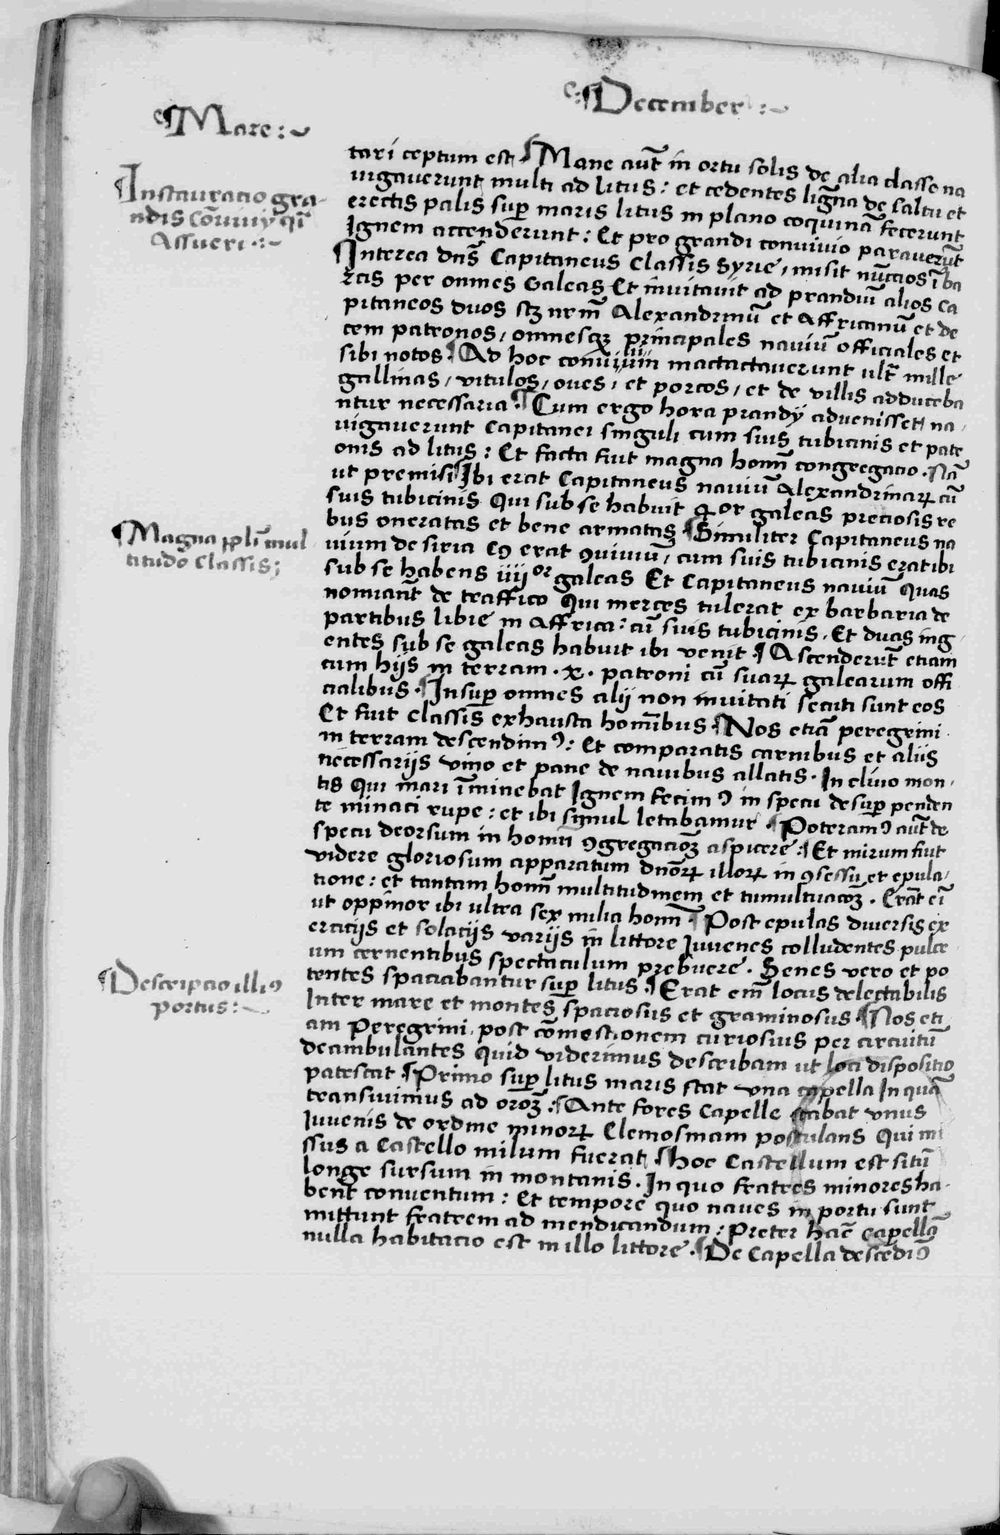 ¶ December :~
¶ Mare :~
tari ceptum est ¶ Mane aut̄ in ortu solis de alia classe na
vigaverunt multi ad litus : et cedentes ligna de saltu et
¶ Instauratio gra-
ndis cōviviy qīi
Assueri .:~
erectis palis sup̄ maris litus in plano coquinā fecerunt
Ignem accenderunt : Et pro grandi convivio paraverūt
¶ Interea dn̄s Capitaneus classis Syrie , misit nūccios ī ba
rcis per omnes Galeas Et invitavit ad prandiū alios ca
pitaneos duos sꝫ nr̄m Alexandrinū et Affricanū et de
cem patronos , omnesqꝫ principales naviū officiales et
sibi notos ¶ Ad hoc convivium mactactaverunt ult̄ mille
gallinas , vitulos , oves , et porcos , et de villis adduceba
ntur necessaria ¶ Cum ergo hora prandÿ advenisset na ,
vigaverunt Capitanei singuli cum suis tubicinis et patr
onis ad litus : Et facta fuit magna homī congregacio . Nā
ut premisi ¶ Ibi erat Capitaneus naviū Alexandrinarꝝ cū
suis tubicinis Qui sub se habuit qͣ or galeas preciosis re
¶ Magna pplī mul
titudo classis ;
bus oneratas et bene armatas ¶ Similiter Capitaneus na
vium de siria cꝯ erat ꝯviviū , cum suis tubicinis erat ibi
sub se habens iiiiᵒʳ galeas Et Capitaneus naviū Quas
nominant̄ de traffico Qui merces tulerat ex barbaria de
partibus libie in Affrica : cū suis tubicinis . Et duas ing
entes sub se galeas habuit ibi venit ¶ Ascenderūt etiam
cum hijs in terram . x . patroni cū suarꝝ galearum offi
cialibus . ¶ Insup̄ omnes alij non invitati secuti sunt eos
Et fuit classis exhausta homībus ¶ Nos etiā peregrini .
in terram descendimꝰ : Et comparatis carnibus et aliis
necessarijs vino et pane de navibus allatis . In clivo mon ,
tis Qui mari īminebat Ignem fecimꝰ in specu desup̄ penden
te minaci rupe : et ibi simul letabamur ¶ Poteramꝰ aut̄ de
specu deorsum in homī ꝯgregacioꝫ aspicere ¶ Et mirum fuit
videre gloriosum apparatum dnōrꝝ illorꝝ in ꝯsessu et epula ,
tione : et tantam homī multitudinem et tumultuacoꝫ . Erāt eī
ut oppinor ibi ultra sex milia homī ¶ Post epulas diversis ex
ercicijs et solacijs varijs in littore Juvenes colludentes pulcr
um cernentibus spectaculum prebuere . Senes vero et po
¶ Descripcio illiꝰ
portus :~
tentes spaciabantur sup̄ litus . ¶ Erat em̄ locus delectabilis
Inter mare et montes spaciosus et graminosus ¶ Nos eti
am Peregrini , post cōmestionem curiosius per circuitū
deambulantes Quid viderimus describam ut loci dispositio
patescat ¶ Primo sup̄ litus maris stat una capella In quā
transivimus ad orōꝫ . ¶ Ante fores Capelle stabat unus
Iuvenis de ordine minorꝝ Elemosinam postulans Qui mi
ssus a Castello milum fuerat ¶ Hoc Castellum est sitū
longe sursum in montanis . In quo fratres minores ha-
bent conventum : Et tempore quo naves in portu sunt
mittunt fratrem ad mendicandum : Preter hāc capellā
nulla habitacio est in illo littore . ¶ De Capella descēdimꝰ